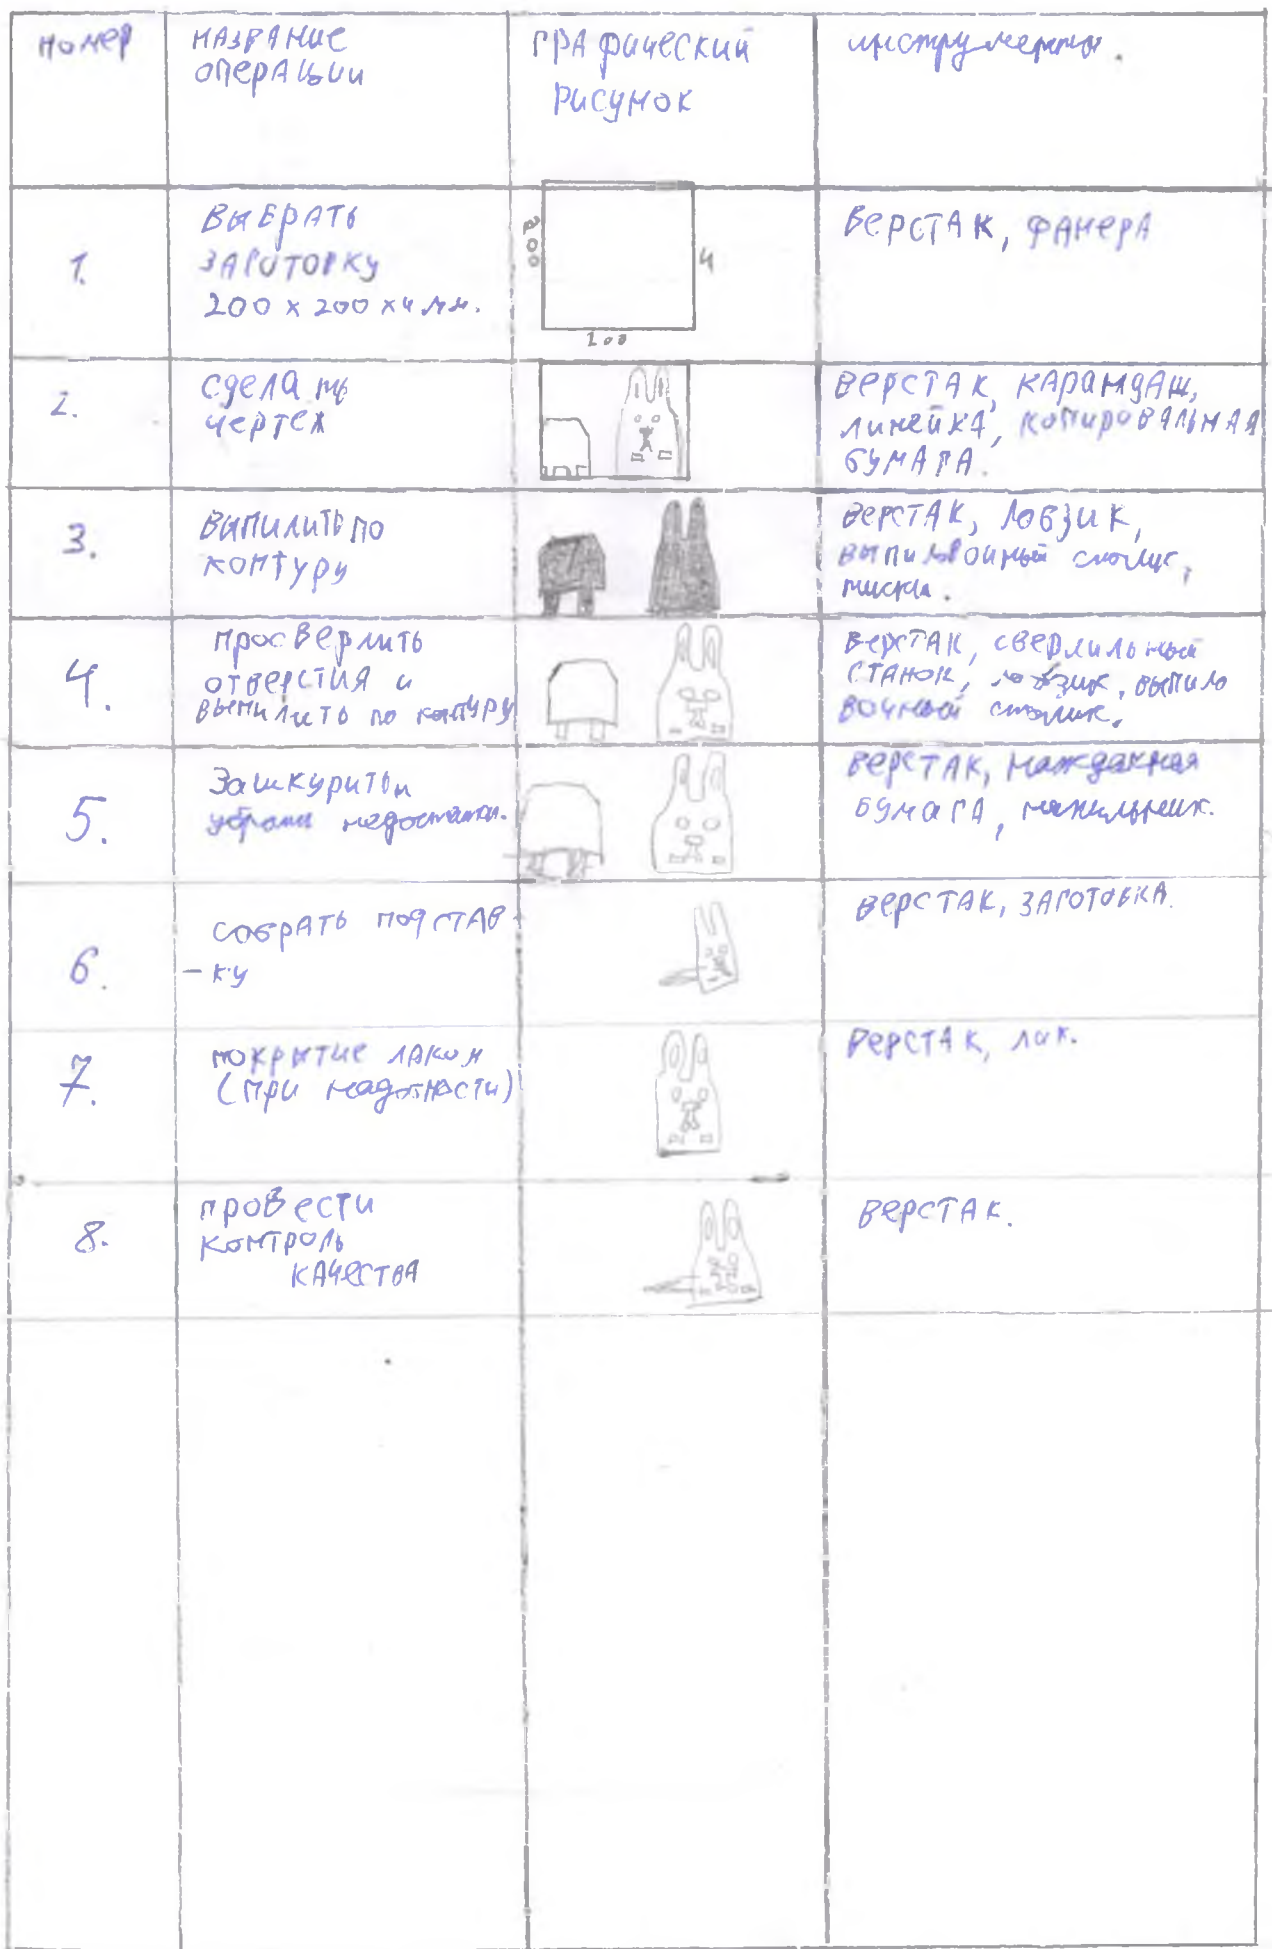 номер
название
операции
графический
рисунок
инструменты.
1.
выбрать
заготовку
200 х 200 х 4 мм.
200
4
200
верстак, фанера
2.
сделать
чертеж
верстак, карандаш,
линейка, копировальная
бумага.
3.
выпилить по
контуру
верстак, лобзик,
столик,
4.
просверлить
отверстия и
выпилить по контуру
верстак, сверлильный
станок, лобзик, выпило
вочный столик.
5.
Зашкурить и
убрать недостатки.
верстак, наждачная
бумага, напильник.
6.
собрать подстав
-ку
верстак, заготовка.
7.
покрытие лаком
(при надобности)
верстак, лак.
8.
провести
контроль
качества
верстак.